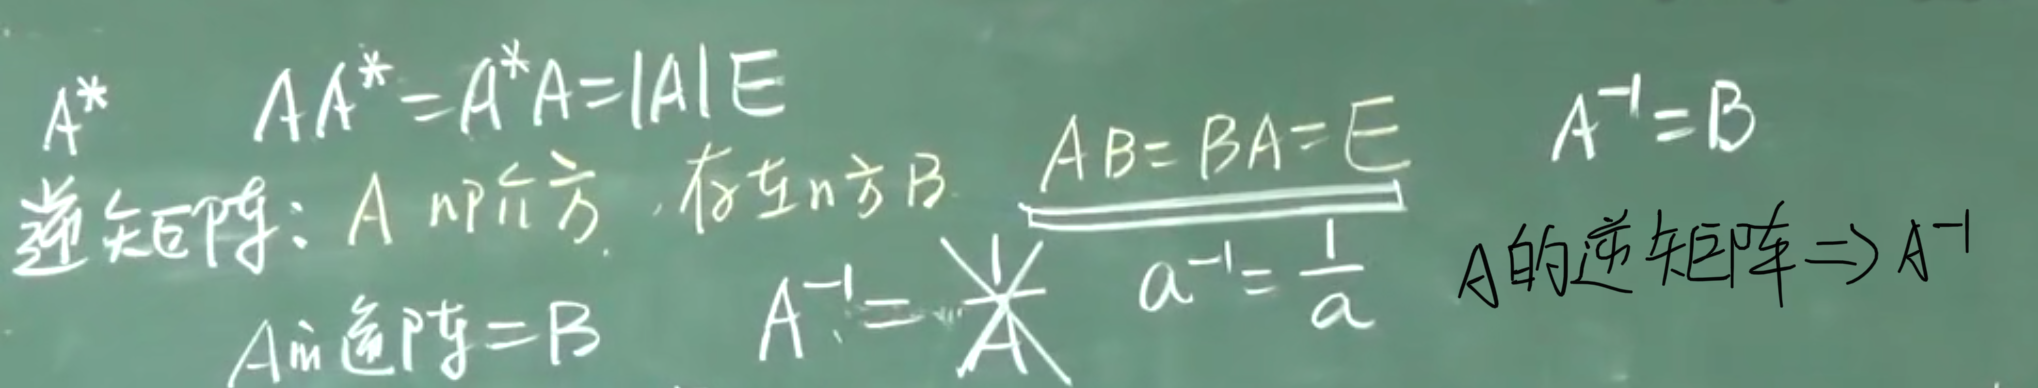 A* AA*=A*A=|A|E
逆矩阵: A n阶方, 存在n方B. AB=BA=E A⁻¹=B
A的逆阵=B A⁻¹=1/A a⁻¹=1/a A的逆矩阵=>A⁻¹